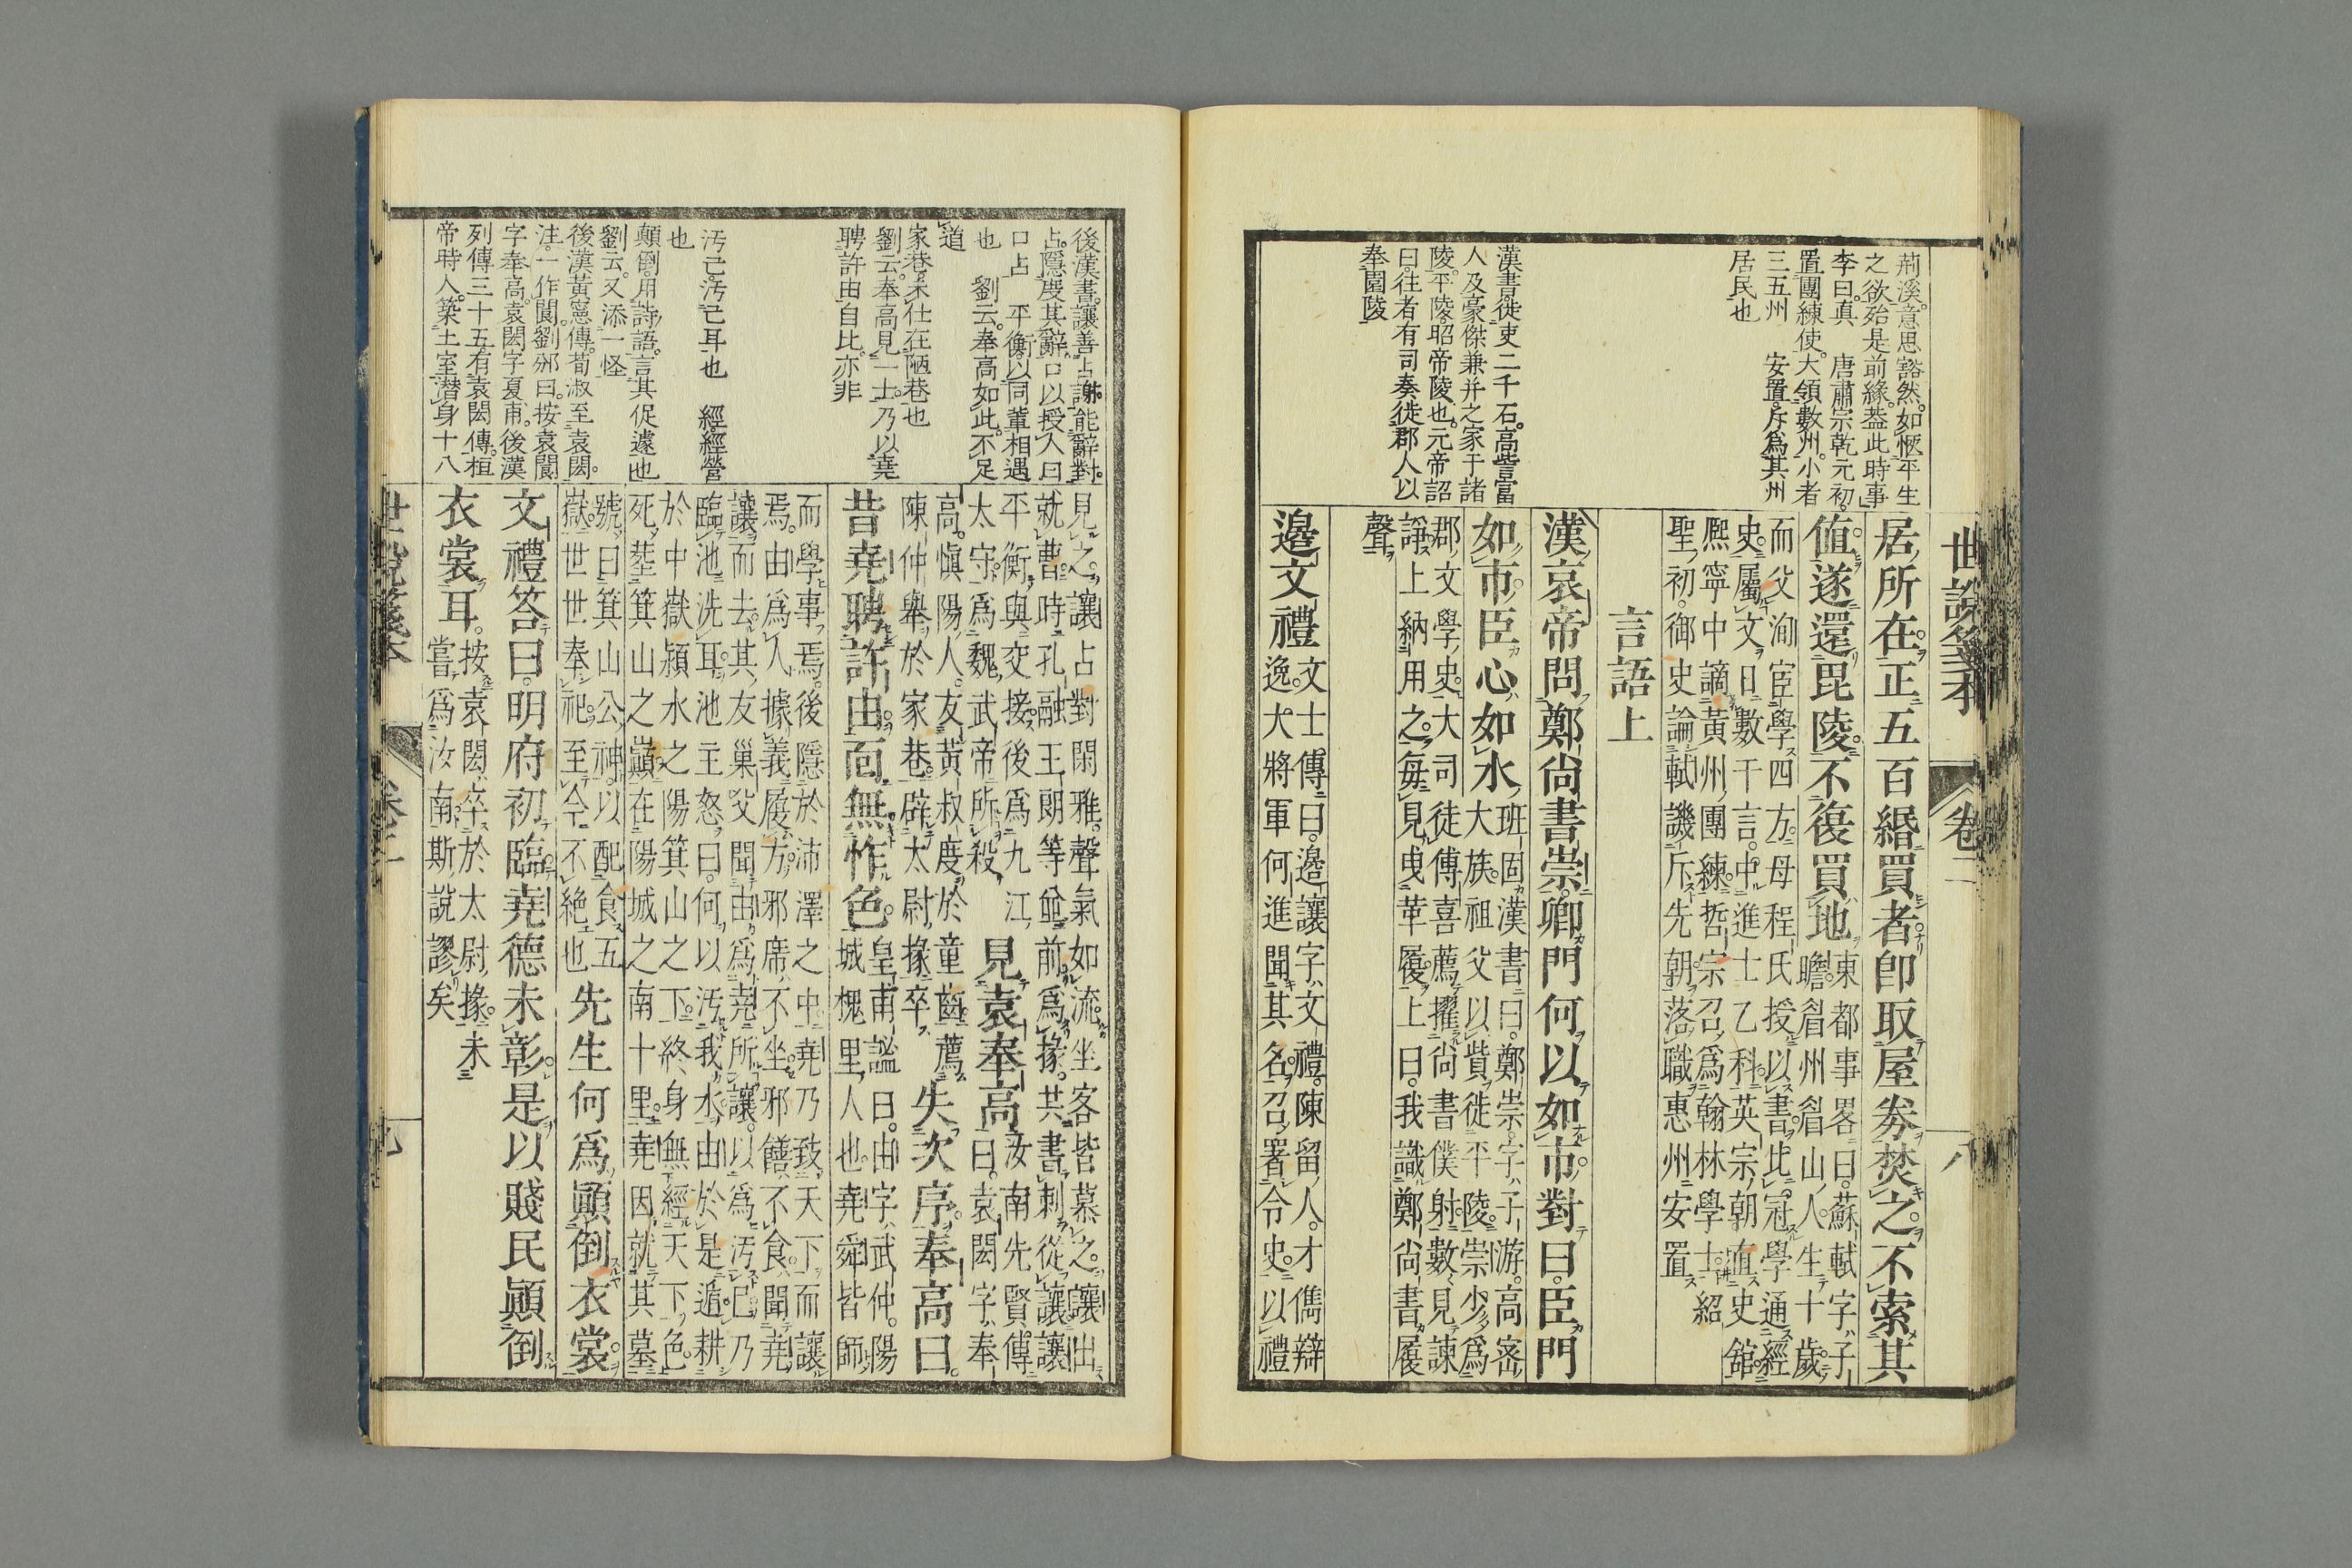 世說箋本　卷二　八
荊溪。意思豁然。如愜平生
之欲。殆是前緣。葢此時事
李曰。真　唐肅宗乾元初。
置團練使。大領數州。小者
三五州　安置。斥爲其州
居民也
漢書。徙吏二千石。高訾富
人及豪傑兼并之家于諸
陵。平陵。昭帝陵也。元帝詔
曰。往者有司奏徙郡人以
奉園陵
居所在。正五百緡買者。卽取屋劵焚之。不索其
值。遂還毘陵。不復買地
東都事畧曰。蘇軾字子
瞻。眉州眉山人。生十歲。
而父洵宦學四方。母程氏授以書。比冠學通經
史。屬文日數千言。中進士乙科。英宗朝直史舘。
熈寧中謫黃州團練。哲宗召爲翰林學士。紹
聖初。御史論軾譏斥先朝。落職惠州安置
言語上
漢哀帝問鄭尚書崇。卿門何以如市。對曰。臣門
如市。臣心如水
班固漢書曰。鄭崇字子游。高密
大族。祖父以貲徙平陵。崇少爲
郡文學史。大司徒傅喜薦。擢尚書僕射。數見諫
諍。上納用之。每見曳革履。上曰。我識鄭尚書履
聲
邉文禮
文士傳曰。邉讓字文禮。陳留人。才儁辯
逸。大將軍何進聞其名。召署令史。以禮
後漢書。讓善占謝。能辭對。
占。隱度其辭。口以授人曰
口占　平衡。以同輩相遇
也　劉云。奉高如此。不足
道
家巷。未仕在陋巷也
劉云。奉高見一士。乃以堯
聘許由自比。亦非
汚己。汚己耳也　經。經營
也
顛倒。用詩語。言其促遽也
劉云。又添一怪
後漢黃憲傳。荀淑至袁閎。
注。一作閬。劉邠曰。按袁閬
字奉高。袁閎字夏甫。後漢
列傳三十五有袁閎傳。桓
帝時人。築土室。潛身十八
見之。讓占對閑雅。聲氣如流。坐客皆慕之。讓出
就曹。時孔融王朗等竝前爲掾。共書刺從讓。讓
平衡與交接。後爲九江
太守。爲魏武帝所殺
見袁奉高
汝南先賢傳
曰。袁閎字奉
高。愼陽人。友黃叔度於童齒。薦
陳仲舉於家巷。辟太尉掾卒
失次序。奉高曰。
昔堯聘許由。面無怍色。
皇甫謐曰。由字武仲。陽
城槐里人也。堯舜皆師
而學事焉。後隱於沛澤之中。堯乃致天下而讓
焉。由爲人據義履方。邪席不坐。邪饍不食。聞堯
讓而去。其友巢父聞由爲堯所讓。以爲汚己。乃
臨池洗耳。池主怒曰。何以汚我水。由於是遁耕
於中嶽潁水之陽箕山之下。終身無經天下色。
死。塟箕山之巓。在陽城之南十里。堯因就其墓
號曰箕山公神。以配食五
嶽。世世奉祀。至今不絶也
先生何爲顚倒衣裳。
文禮答曰。明府初臨。堯德未彰。是以賤民顚倒
衣裳耳。
按袁閎卒於太尉掾。未
嘗爲汝南。斯說謬矣
世說箋本　卷二　九